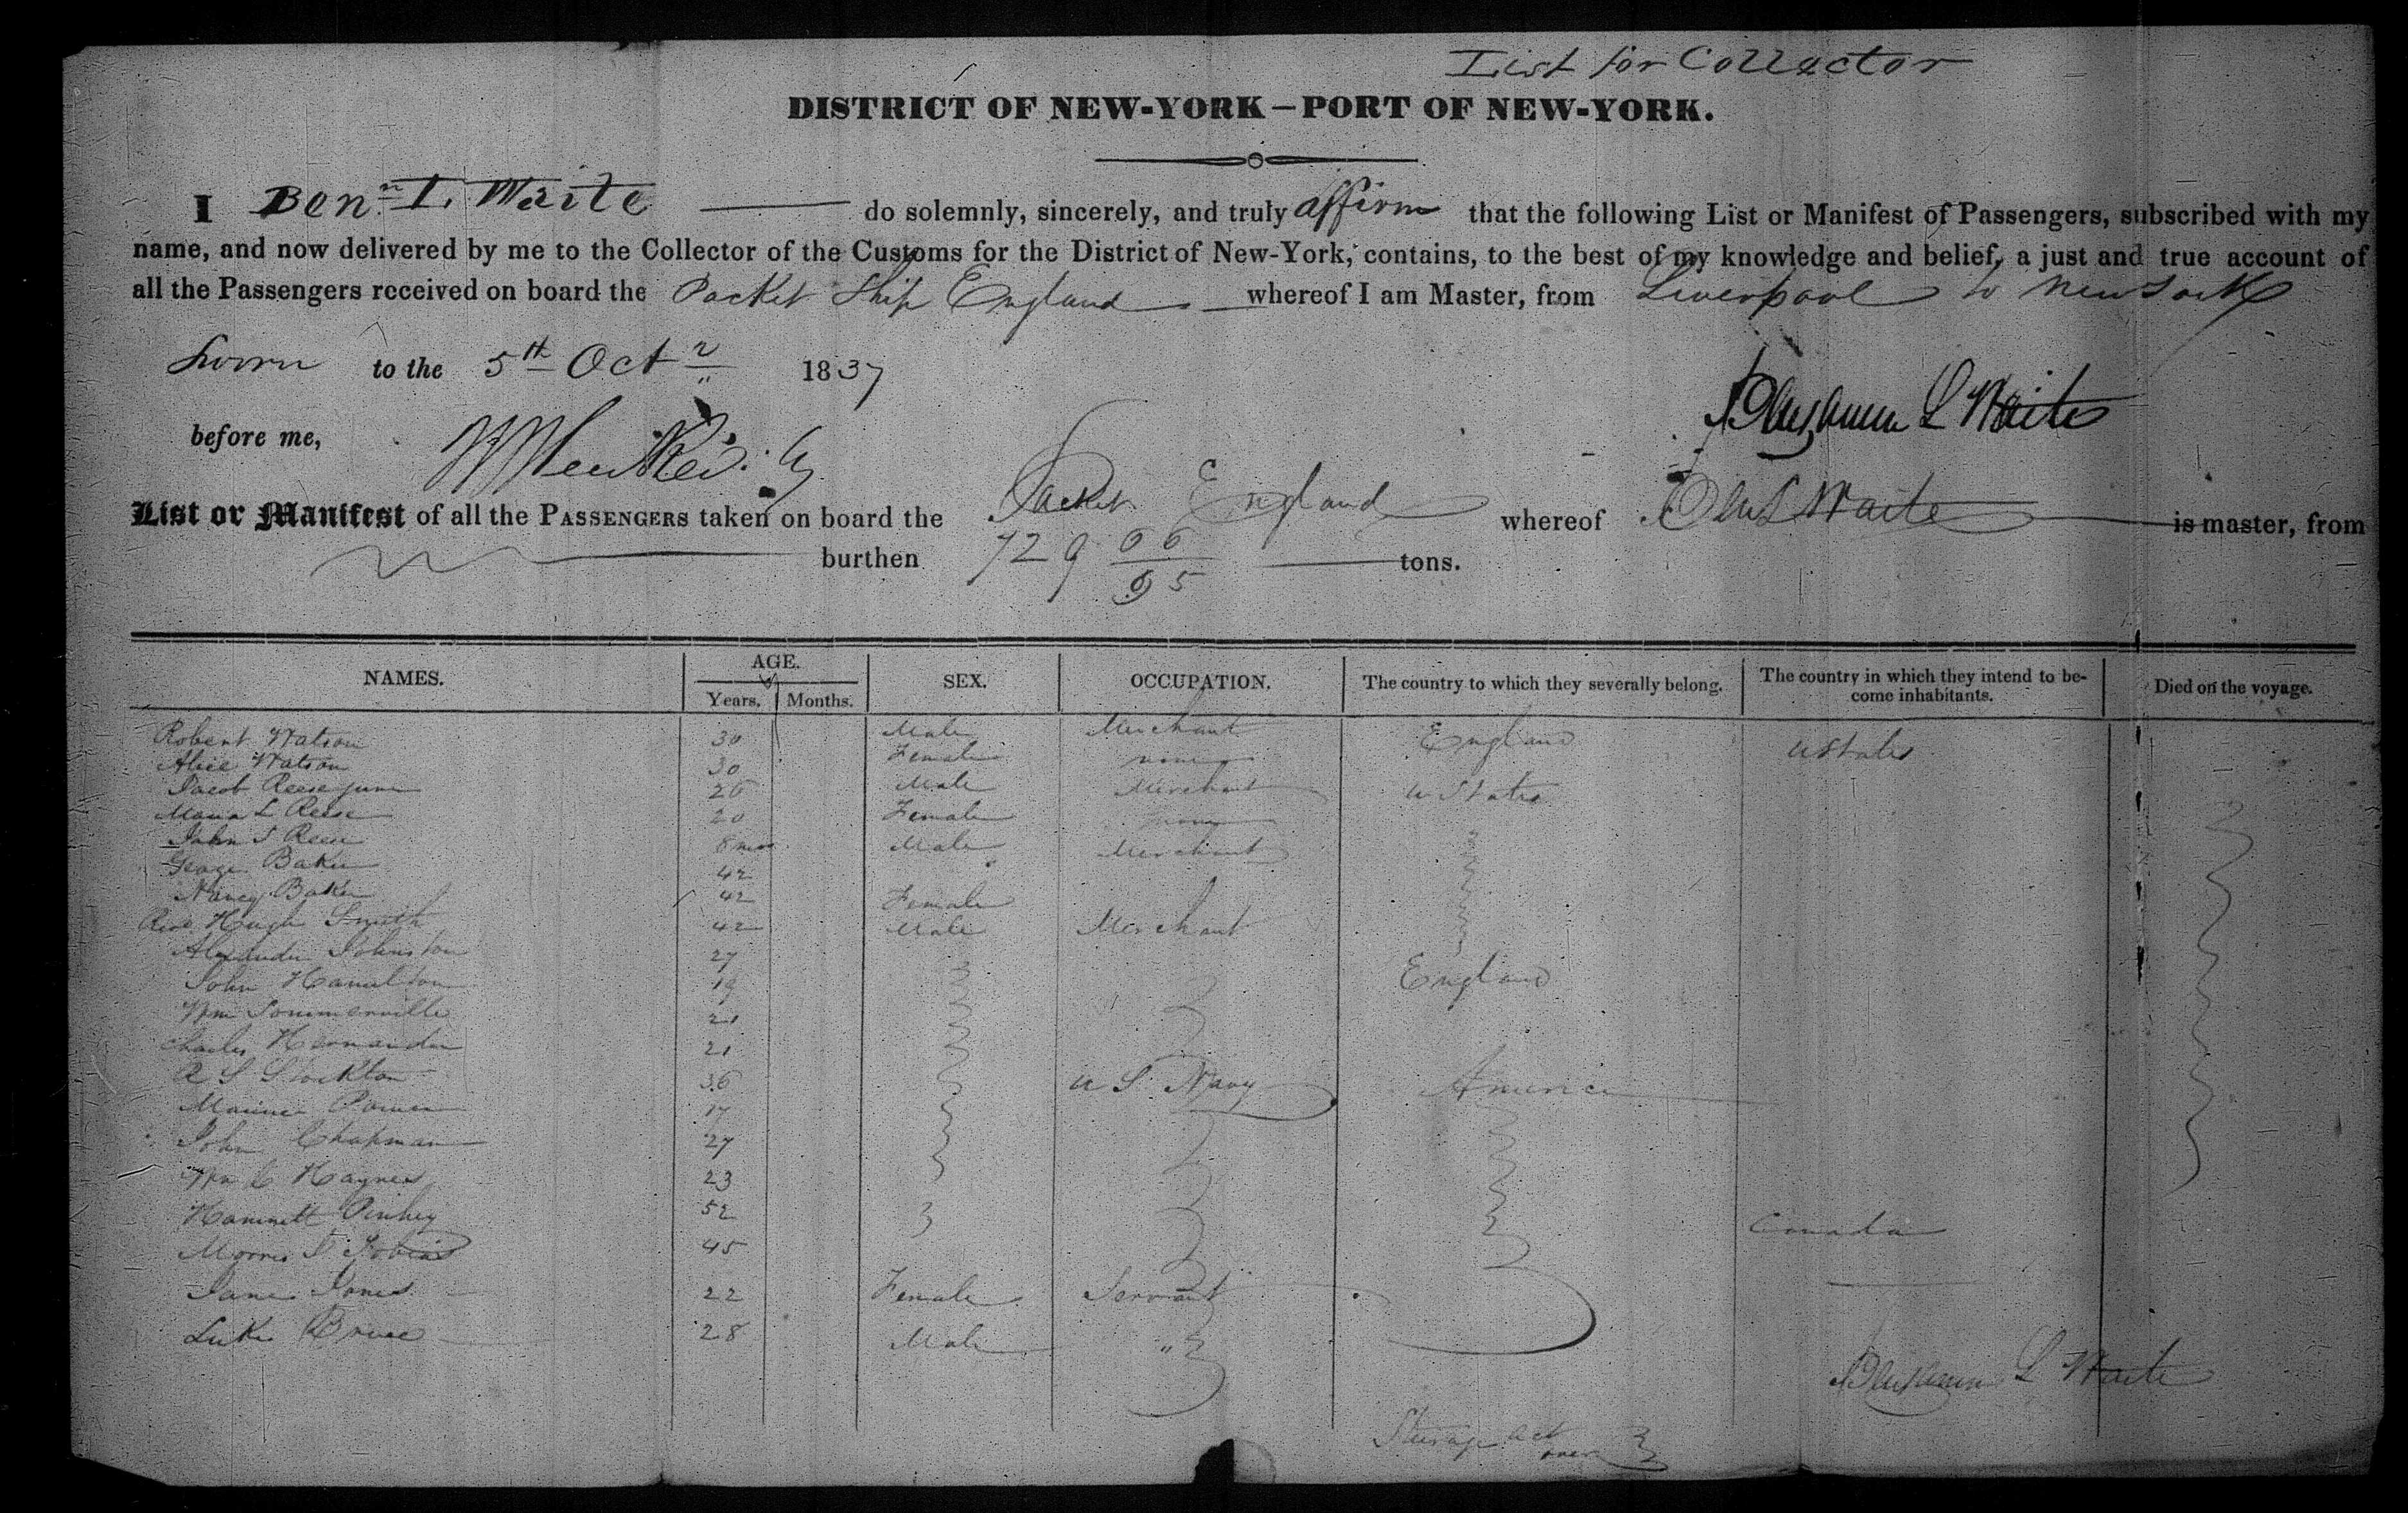 List for Collector
DISTRICT OF NEW-YORK — PORT OF NEW-YORK.
I Benn. L. Waite do solemnly, sincerely, and truly affirm that the following List or Manifest of Passengers, subscribed with my
name, and now delivered by me to the Collector of the Customs for the District of New-York, contains, to the best of my knowledge and belief, a just and true account of
all the Passengers received on board the Packet Ship England whereof I am Master, from Liverpool to New York
Sworn to the 5th Octr 1837
Benjamin L Waite
before me,
List or Manifest of all the PASSENGERS taken on board the Packet England whereof Ben L Waite is master, from
burthen 729 06/95 tons.
NAMES. AGE. SEX. OCCUPATION. The country to which they severally belong. The country in which they intend to be- Died on the voyage.
Years. Months. come inhabitants.
Robert Watson 30 Male Merchant England U States
Alice Watson 30 Female none
Jacob Reese junr 26 Male Merchant U States
Maria L Reese 20 Female none
John S Reese 8 mos Male Merchant
George Baker 42
Nancy Baker 42 Female
Revd Hugh Smith 42 Male Merchant
Alexander Johnston 27
John Hamilton 19 England
Wm Sommerville 21
Charles Hernandez 21
R S Stockton 36 U S Navy America
Power 17
John Chapman 27
Wm C Haynes 23
Hamnett Pinhey 52 Canada
Morris J Tobias 45
Jane Jones 22 Female Servant
Luke Bruce 28 Male "
Benjamin L Waite
Steerage act over